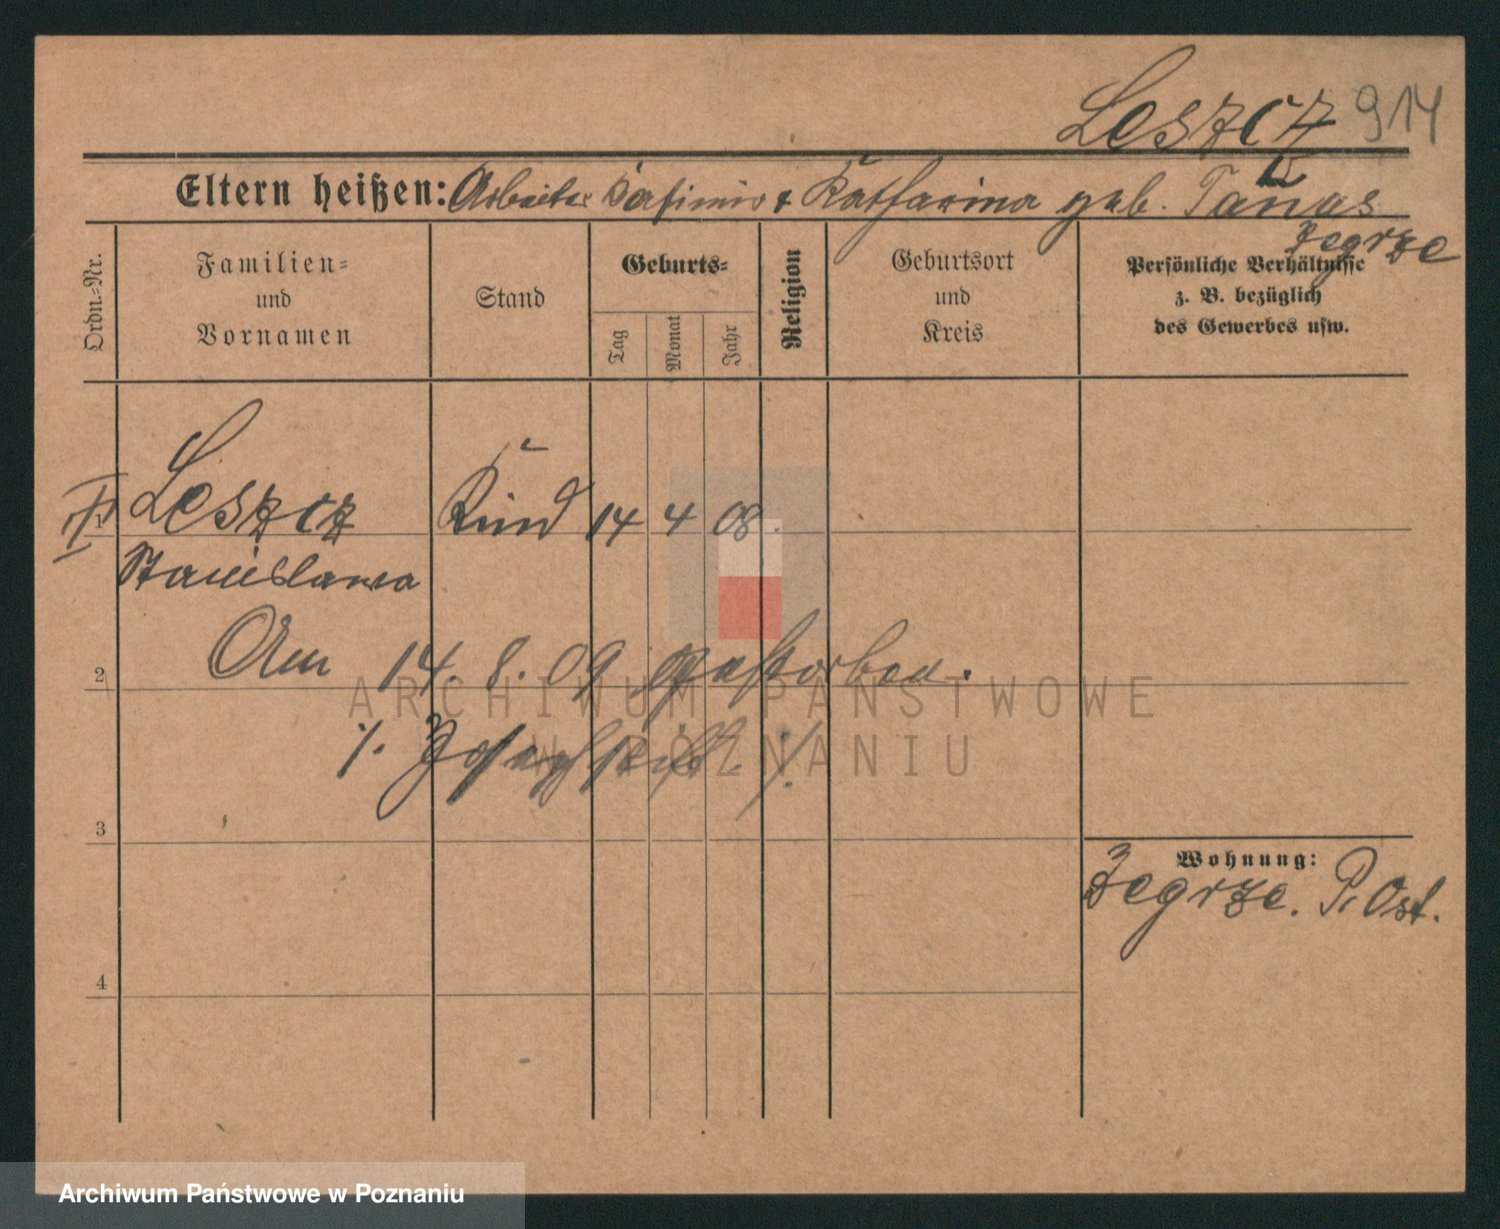 Leszcz 914
Eltern heißen: Arbeiter Kasimir & Katharina geb. Tanas
Zegrze
Ordn.-Nr.
Familien-
und
Vornamen
Stand
Geburts-
Tag
Monat
Jahr
Religion
Geburtsort
und
Kreis
Persönliche Verhältnisse
z. B. bezüglich
des Gewerbes usw.
II 1 Leszcz Kind 14 4 08.
Stanislawa
2 Am 14. 8. 09 gestorben.
ARCHIWUM PAŃSTWOWE
W POZNANIU
·/. Josephstift ·/.
3
Wohnung:
Zegrze. P. Ost.
4
Archiwum Państwowe w Poznaniu